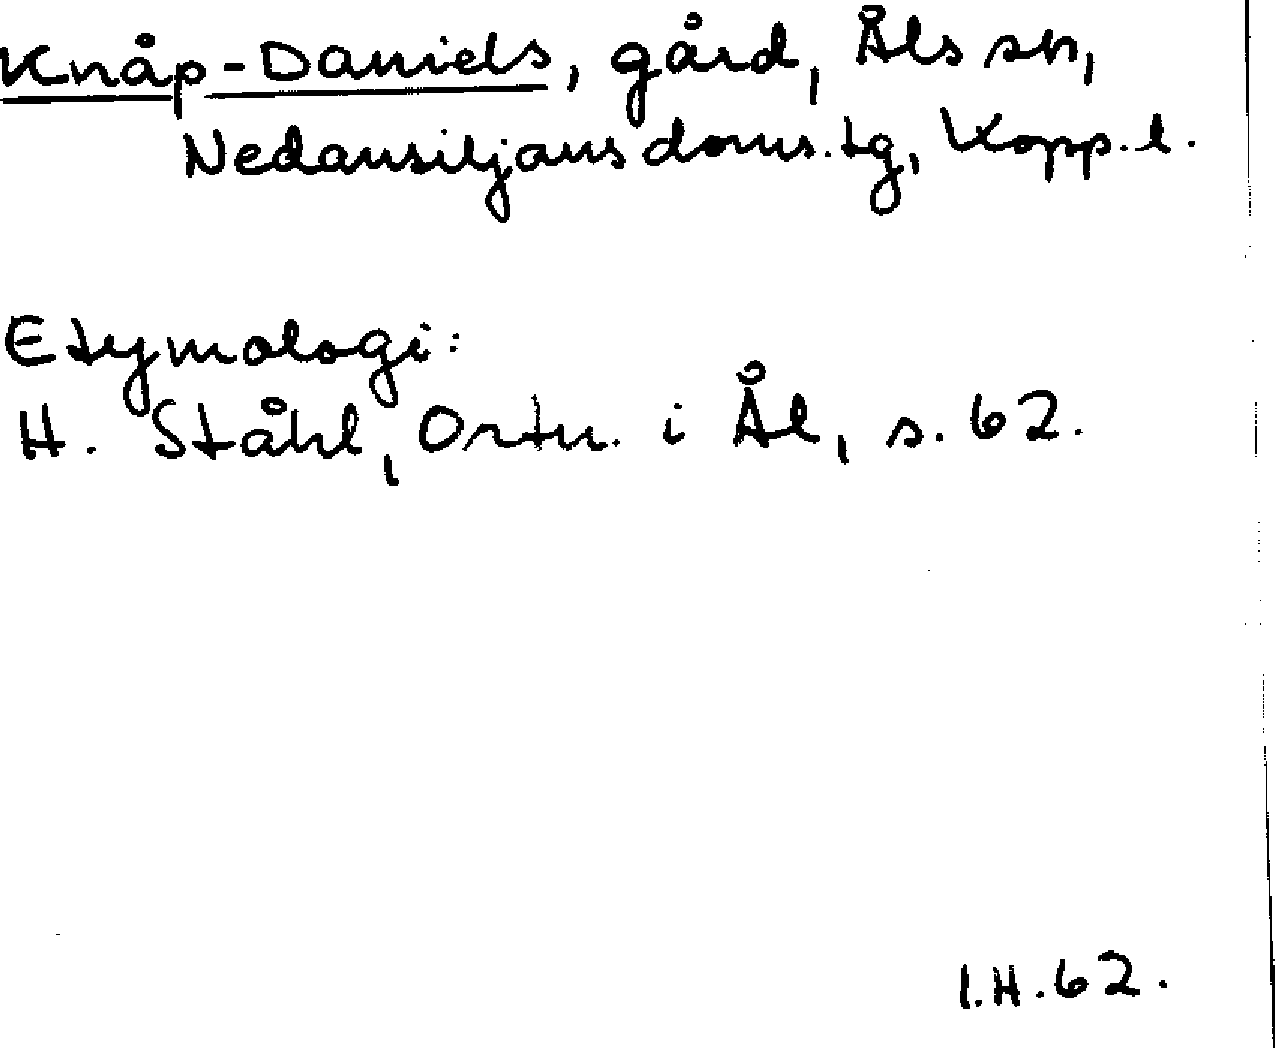 Knåp-Daniels, gård, Åls sn,
Nedansiljans doms.tg, Kopp.l.
Etymologi:
H. Ståhl, Ortn. i Ål, s. 62.
I.H.62.